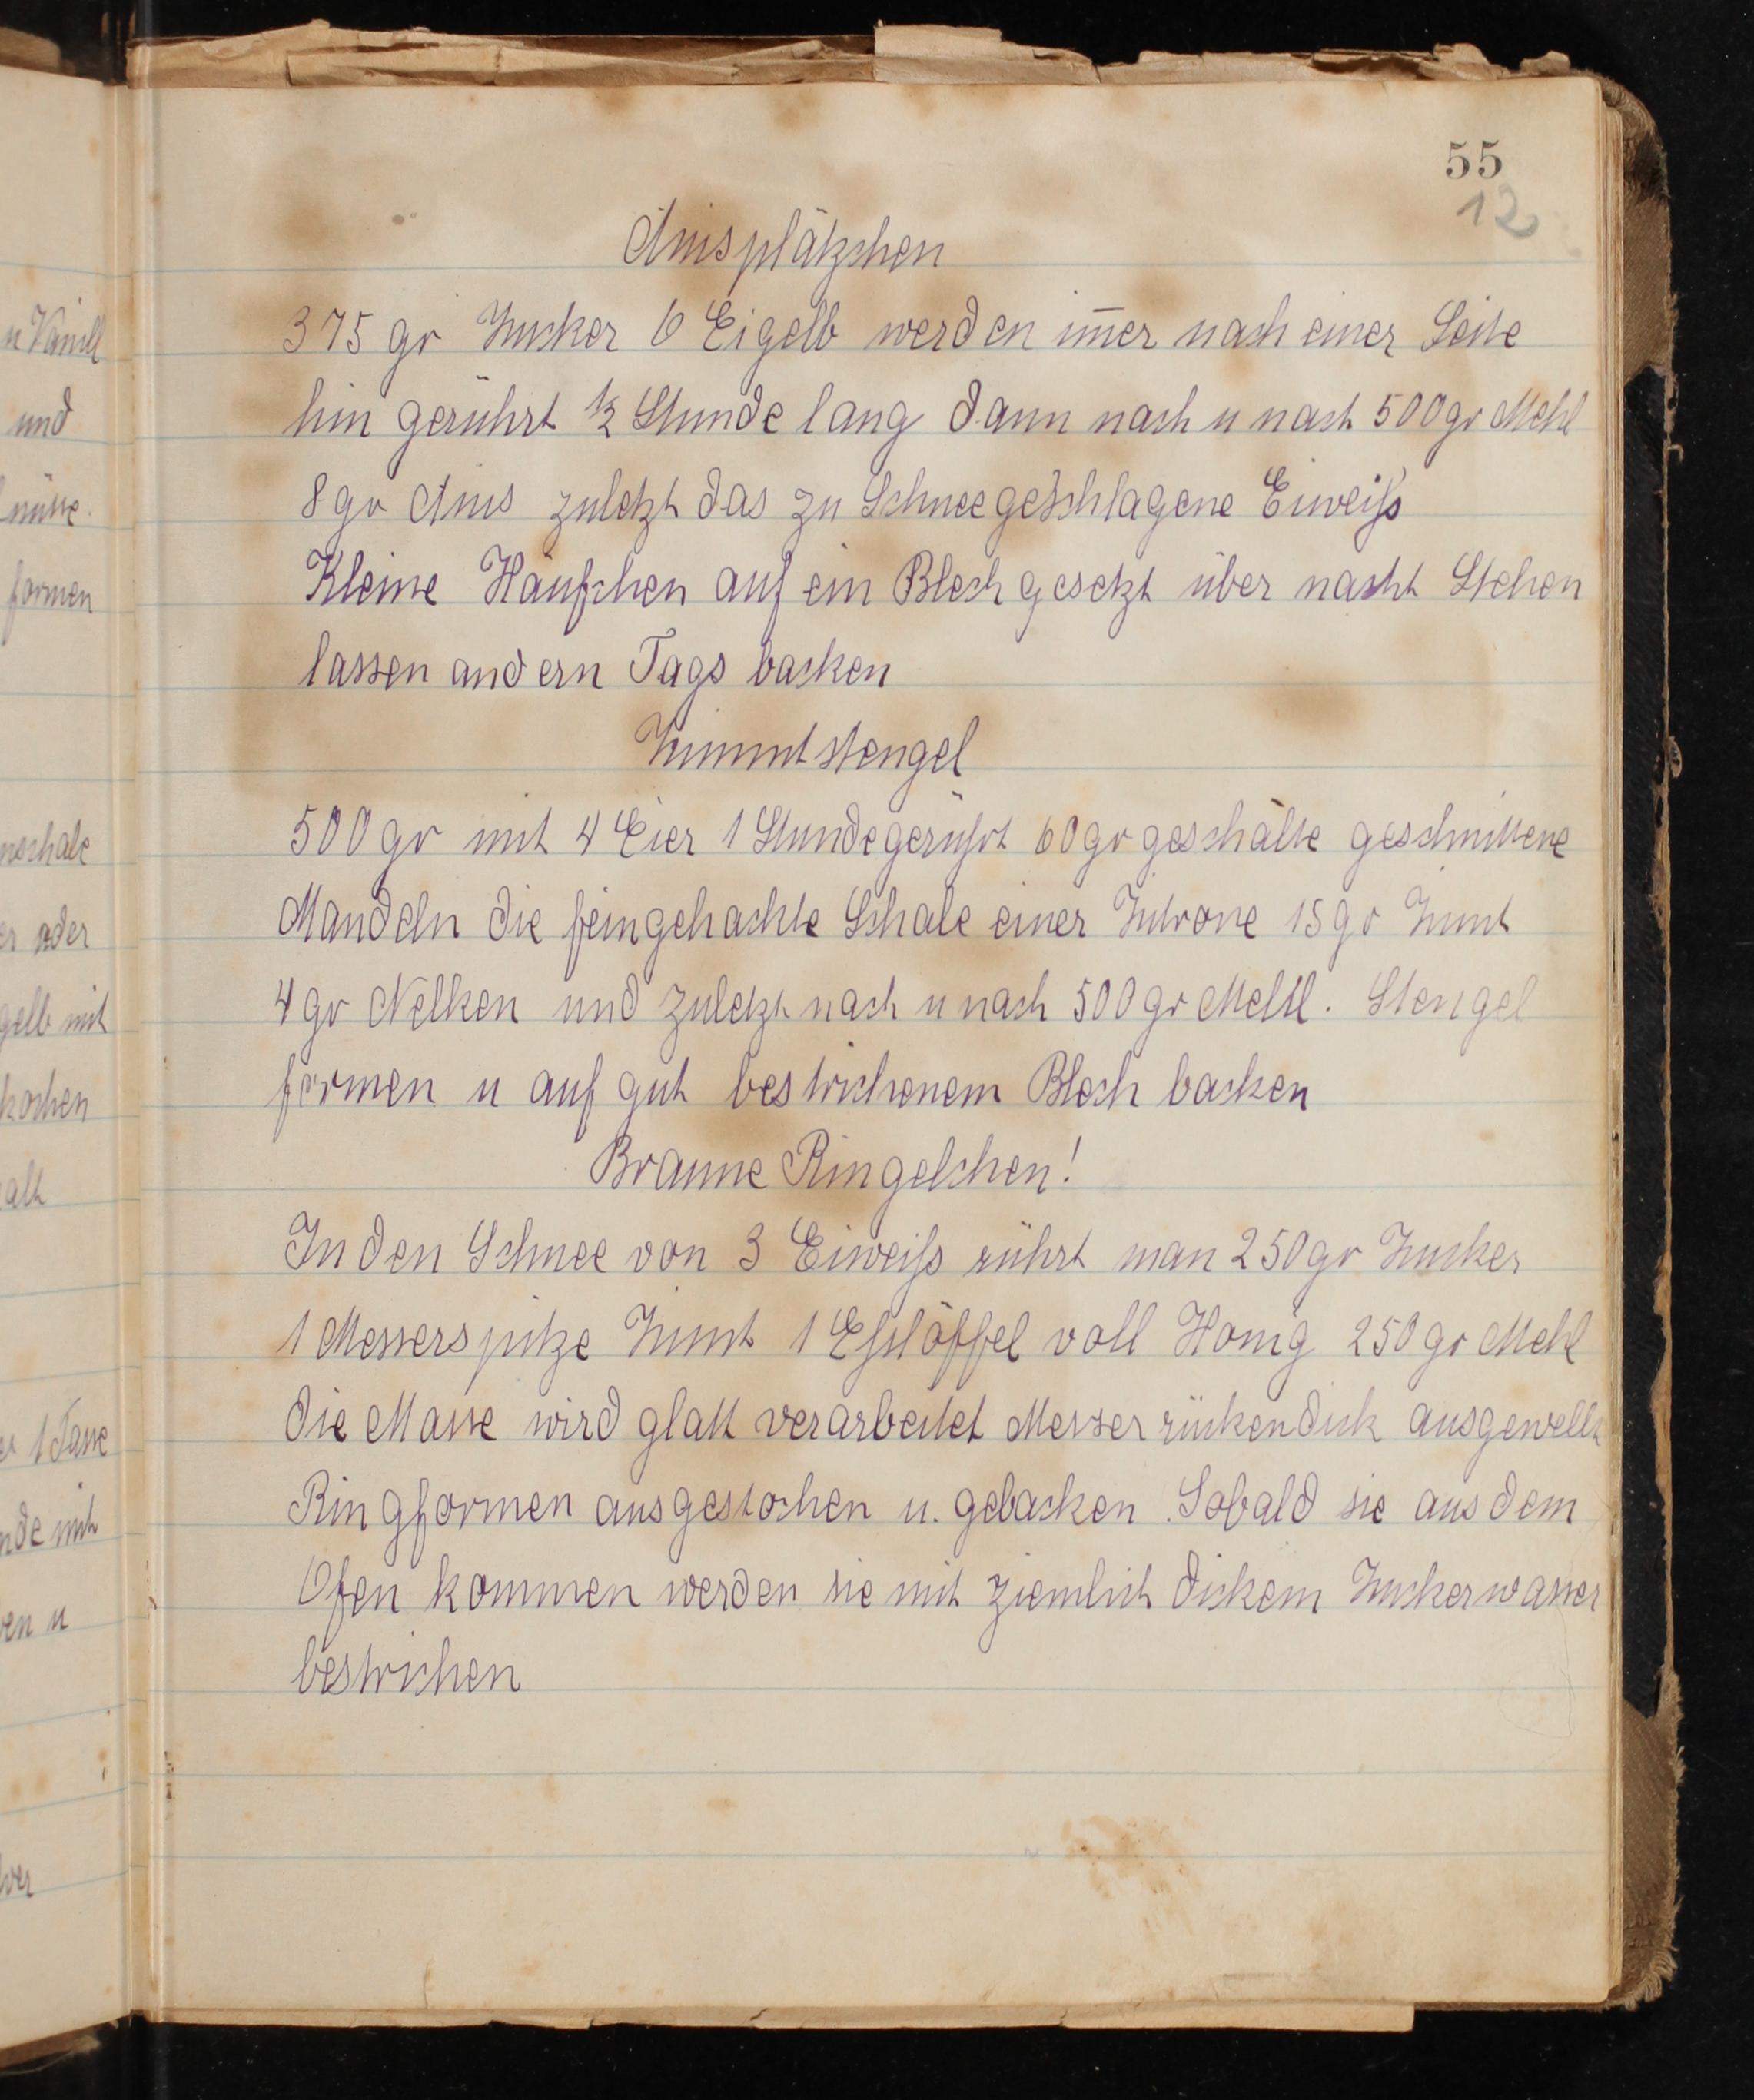 55
12
Anisplätzchen
375 gr Zucker 6 Eigelb werden im̅er nach einer Seite
hin gerührt ½ Stunde lang dann nach u nach 500 gr Mehl
8 gr Anis zuletzt das zu Schnee geschlagene Eiweiß
Kleine Häufchen auf ein Blech gesetzt über nacht Stehen
lassen andern Tags backen
Zimmtstengel
500 gr mit 4 Eier 1 Stunde gerührt 60 gr geschälte geschnittene
Mandeln die feingehackte Schale einer Zitrone 15 gr Zimt
4 gr Nelken und zuletzt nach u nach 500 gr Mehl. Stengel
formen u auf gut bestrichenem Blech backen
Braune Ringelchen!
In den Schnee von 3 Eiweiß rührt man 250 gr Zucker
1 Messerspitze Zimt 1 Eßlöffel voll Honig 250 gr Mehl
die Masse wird glatt verarbeitet Messerrückendick ausgewellt
Ringformen ausgestochen u. gebacken. Sobald sie aus dem
Ofen kommen werden sie mit ziemlich dickem Zuckerwasser
bestrichen